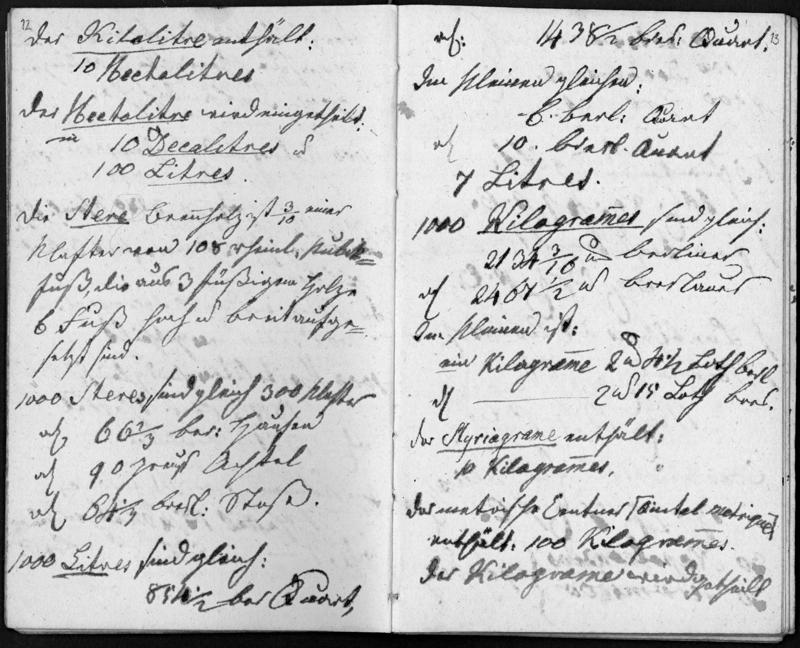 12
Der Kilolitre enthält:
10 Hectolitres
Der Hectolitre wird eingetheilt:
in
10 Decalitres u
100 Litres.
Die Stere Brennholz ist 3/10 einer
Klafter von 108 rheinl. Kubik=
fuß, die aus 3 füßigem Holze
6 Fuß hoch u breit aufge=
setzt sind.
1000 Steres sind gleich 300 Klafter
66 2/3 ber: Haufen
90 preuß Achtel
bresl: Stoß.
1000 Litres sind gleich:
ber Quart,
13
1438 1/2 bres: Quart.
Im Kleinen gleichen:
6. berl: Quart
10. bresl. Quart
7 Litres.
1000 Kilogram̄es sind gleich:
2134 3/10 berliner
2467 1/2 breslauer
Im Kleinen ist:
ein Kilogram̄e 2 4 1/2 Loth berl
2 15 Loth bres.
Der Myriagrame enthält:
10 Kilogram̄es.
Der metrische Centner
enthält: 100 Kilogram̄es.
Der Kilograme wird getheilt